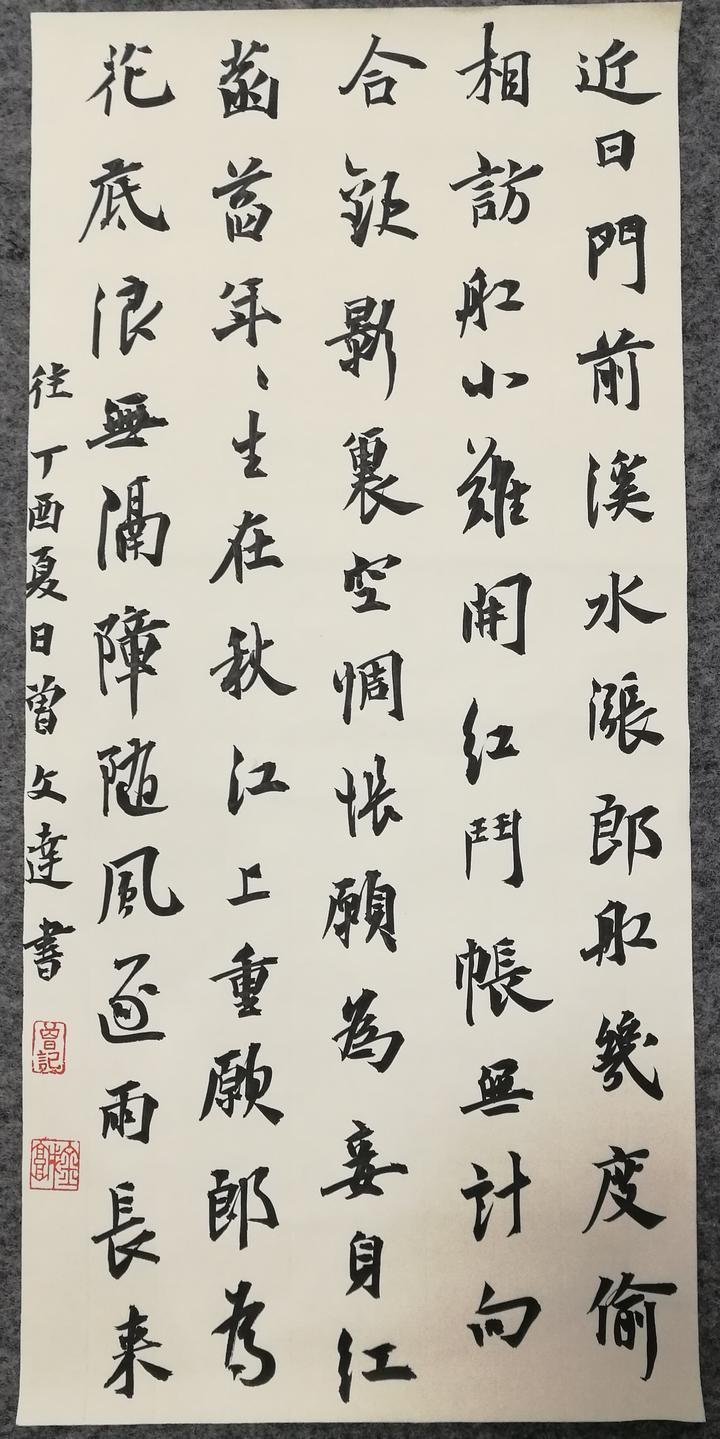 近日門前溪水漲郎舡幾度偷
相訪舡小難開紅鬥帳無計向
合歡影裏空惆悵願為妾身紅
菡萏年〻生在秋江上重願郎為
花底浪無隔障隨風逐雨長来
往丁酉夏日曾文達書
曾記